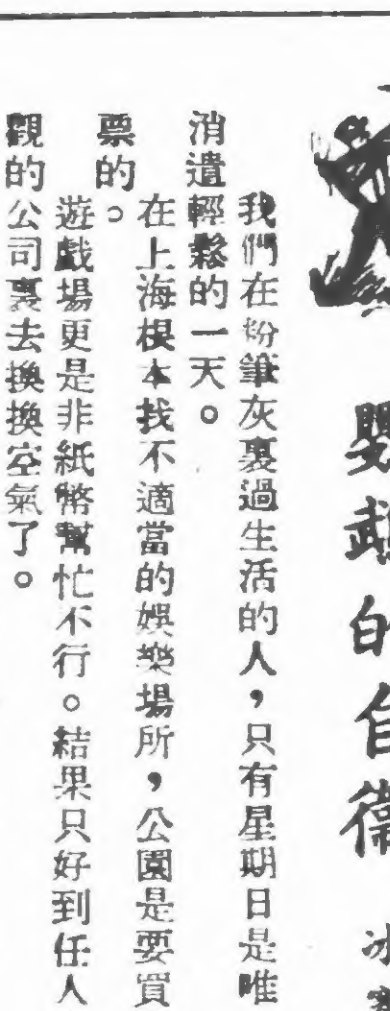 鸚鵡的自衛 冰
我們在粉筆灰裏過生活的人，只有星期日是唯
消遣輕鬆的一天。
在上海根本找不適當的娛樂場所，公園是要買
票的。
遊戲場更是非紙幣幫忙不行。結果只好到任人
觀的公司裏去換換空氣了。